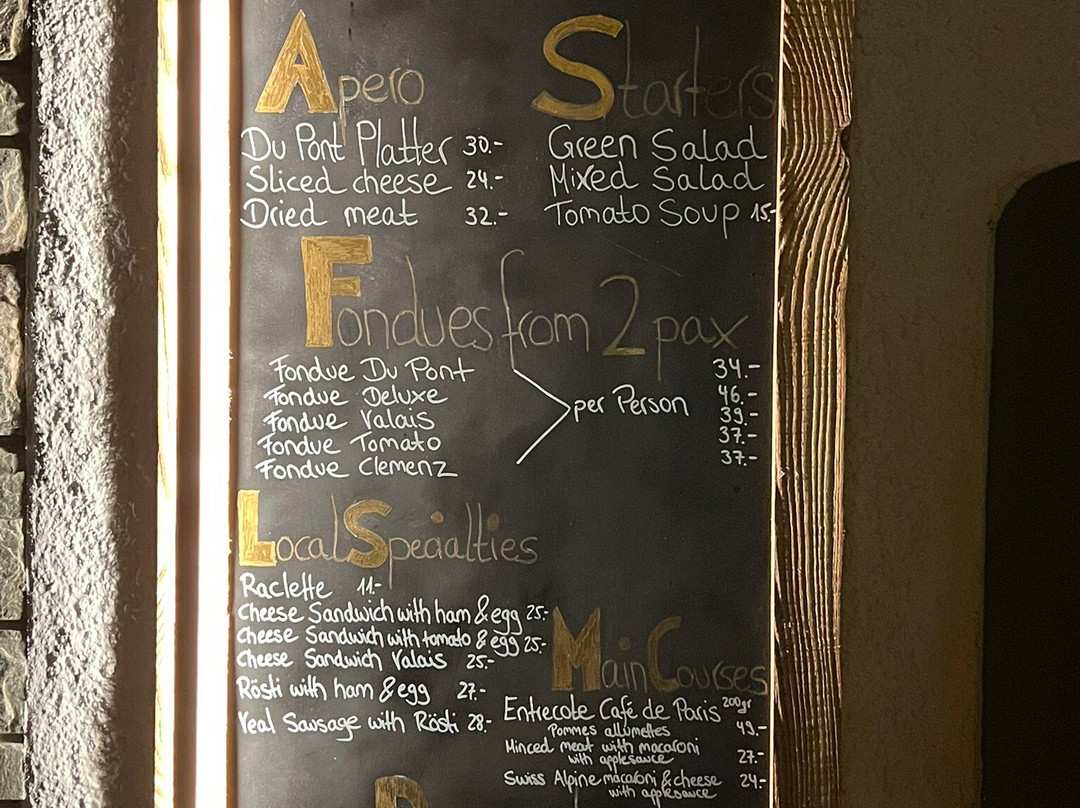 Apero
Du Pont Platter 30.-
Sliced cheese 24.-
Dried meat 32.-
Starters
Green Salad
Mixed Salad
Tomato Soup 15.-
Fondues from 2 pax
Fondue Du Pont 34.-
Fondue Deluxe 46.-
Fondue Valais per Person 39.-
Fondue Tomato 37.-
Fondue Clemenz 37.-
Local Specialties
Raclette 11.-
Cheese Sandwich with ham & egg 25.-
Cheese Sandwich with tomato & egg 25.-
Cheese Sandwich Valais 25.-
Rösti with ham & egg 27.-
Veal Sausage with Rösti 28.-
Main Courses
Entrecote Café de Paris 200gr
Pommes allumettes 49.-
Minced meat with macaroni
with applesauce 27.-
Swiss Alpine macaroni & cheese 24.-
with applesauce